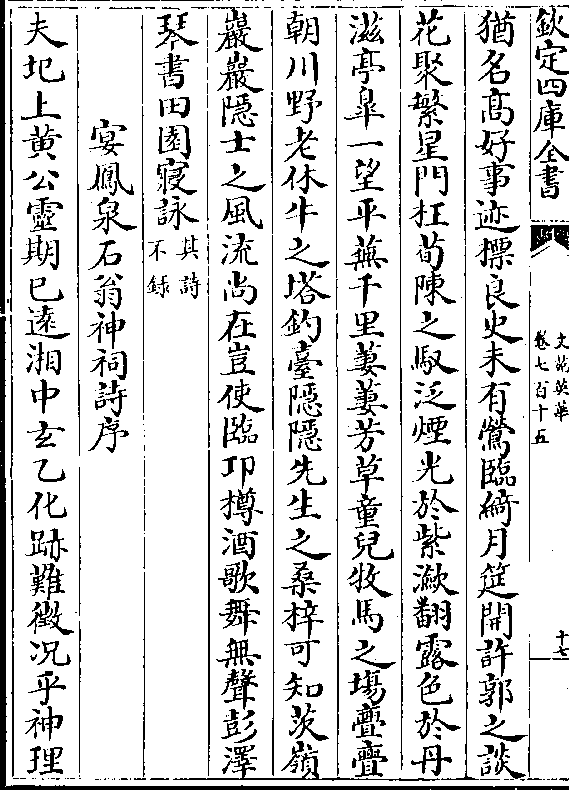 欽定四庫全書
文苑英華
卷七百十五
十七
猶名髙好事迹摽良史未有鶯臨綺月筵開許郭之談
花聚繁星門枉荀陳之馭泛煙光於紫溆翻露色於丹
滋亭臯一望平蕪千里萋萋芳草童兒牧馬之塲亹亹
朝川野老休牛之塔釣臺隠隠先生之桑梓可知茨嶺
巖巖隠士之風流尚在豈使臨卭樽酒歌舞無聲彭澤
琴書田園寢詠其詩不録
宴鳳泉石翁神祠詩序
夫圯上黄公靈期已逺湘中玄乙化跡難徴况乎神理